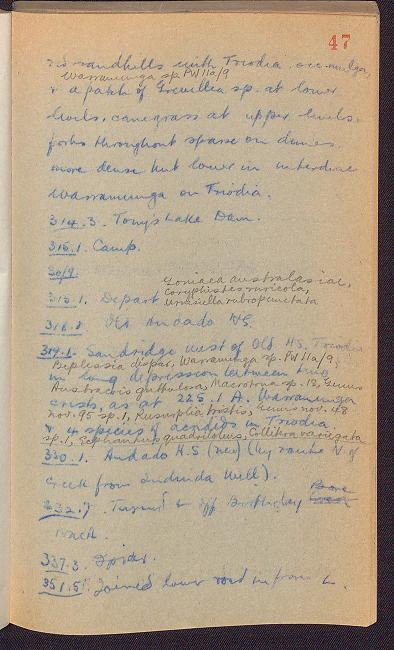 47
sandhills with Triodia, occ. mulga,
Warramunga sp. PW11a/9
& a patch of Grevillea sp. at lower
levels, canegrass at upper levels.
forbs throughout sparse on dunes
more dense but lower in interdune
Warramunga on Triodia.
314.3. Tonys Lake Dam.
315.1. Camp.
30/9.
Goniaea australasiae,
Coryphistes ruricola,
315.1. Depart Urnisella rubropunctata
Old Andado HS.
319.1. Sandridge west of Old HS, Triodia
Peplessia dispar, Warramunga sp. PW11a/9,
in long depression between twin
Austracris guttulosa, Macrotona sp. 13, Genus
crests, as at 225.1 A. Warramunga
nov. 95 sp. 1, Rusurplia tristis, Genus nov. 48
& 4 species of acridids in Triodia.
sp. 1, Ecphantus quadrilobus, Collitera variegata
330.1. Andado H.S (new) (by route N of
Creek from Indinda Well).
332.7. Turned off Birthday Bore
track.
337.3.
351.5. Joined lower road in from L.